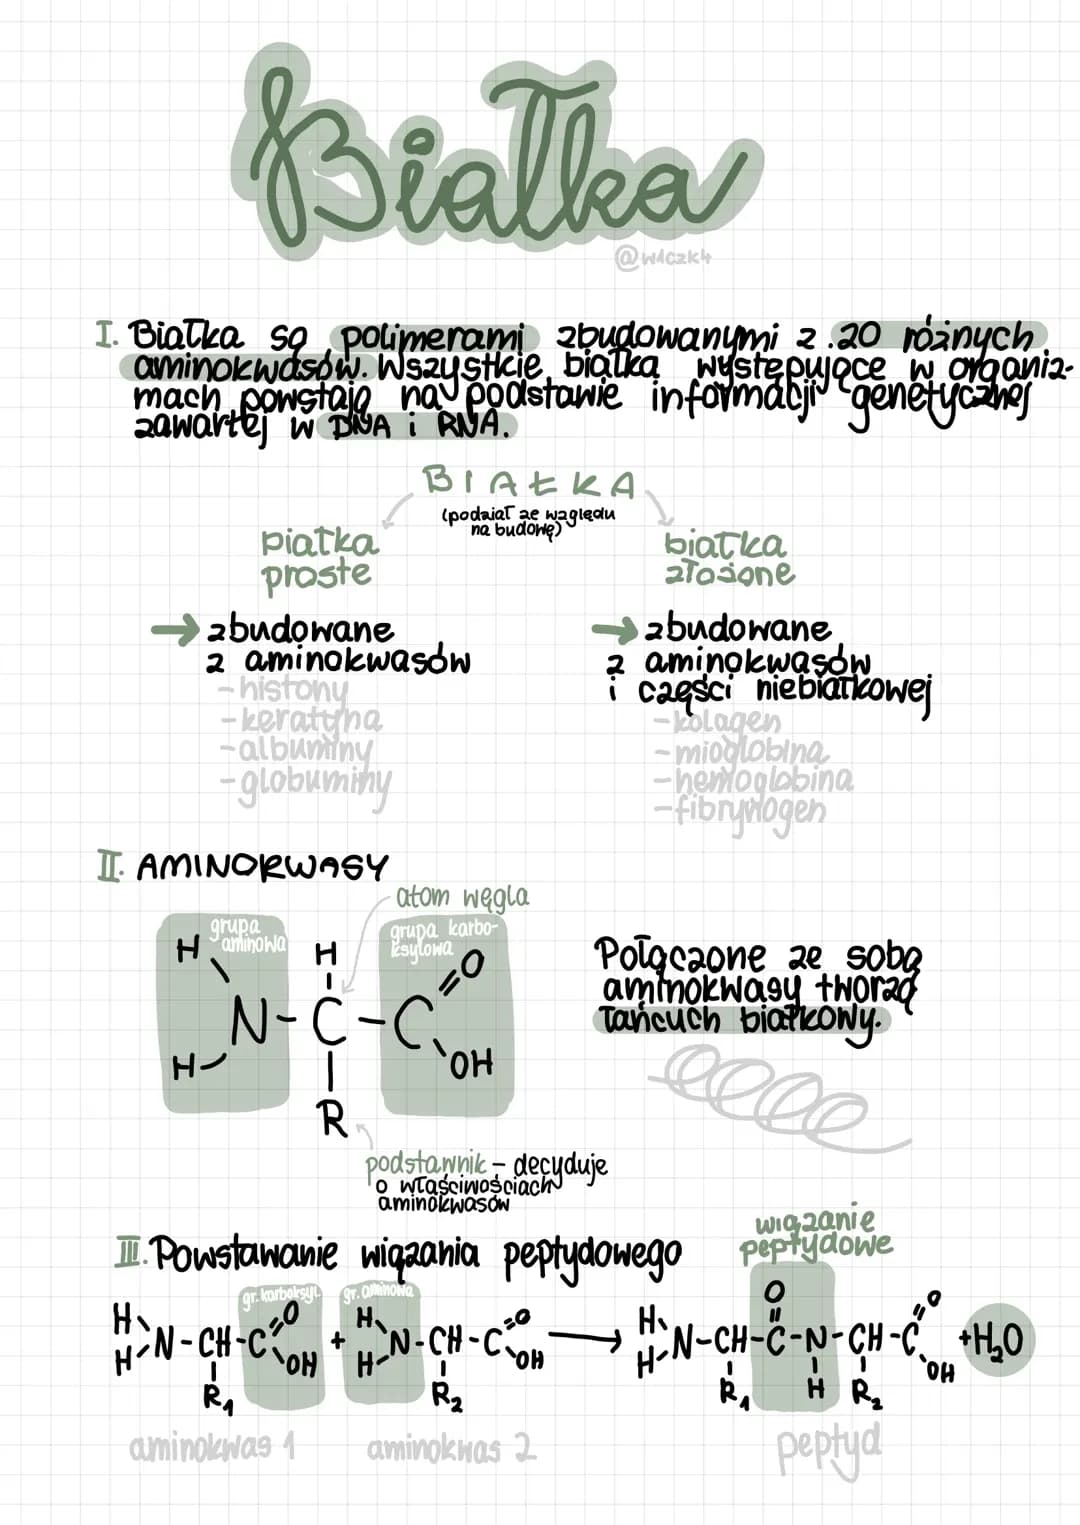 Białka
@w1czk4
I. Białka są polimerami zbudowanymi z 20 różnych
aminokwasów. Wszystkie białka występujące w organiz-
mach powstają na podstawie informacji genetycznej
zawartej w DNA i RNA.
BIAŁKA
(podział ze względu
na budowę)
białka
proste
białka
złożone
→ zbudowane
z aminokwasów
- histony
- keratyna
- albuminy
- globuminy
→ zbudowane
z aminokwasów
i części niebiałkowej
- kolagen
- mioglobina
- hemoglobina
- fibrynogen
II. AMINOKWASY
atom węgla
grupa
aminowa
grupa karbo-
ksylowa
H H O
N-C-C
H OH
R
podstawnik - decyduje
o właściwościach
aminokwasów
Połączone ze sobą
aminokwasy tworzą
łańcuch białkowy.
III. Powstawanie wiązania peptydowego
wiązanie
peptydowe
gr. karboksyl. gr. aminowa
H O H O O H O
N-CH-C + N-CH-C → N-CH-C-N-CH-C +H₂O
H OH H OH H H OH
R₁ R₂ R₁ R₂
aminokwas 1 aminokwas 2 peptyd